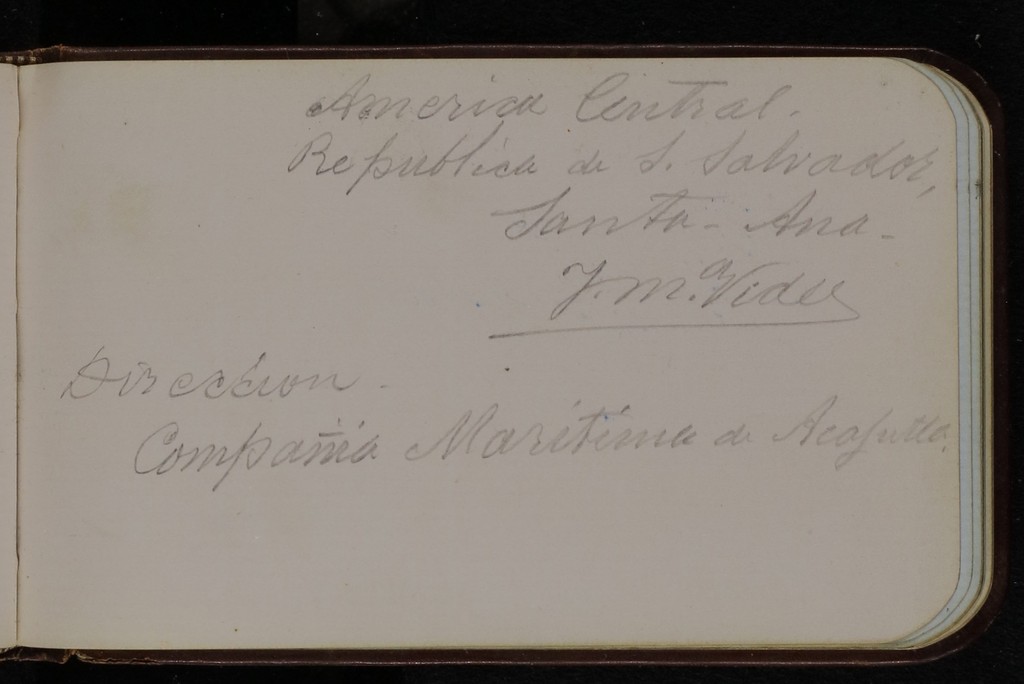 America Central.
Republica de S. Salvador,
Santa - Ana -
J. Mª Vides
Direccion.
Compañia Maritima de Acajutla.